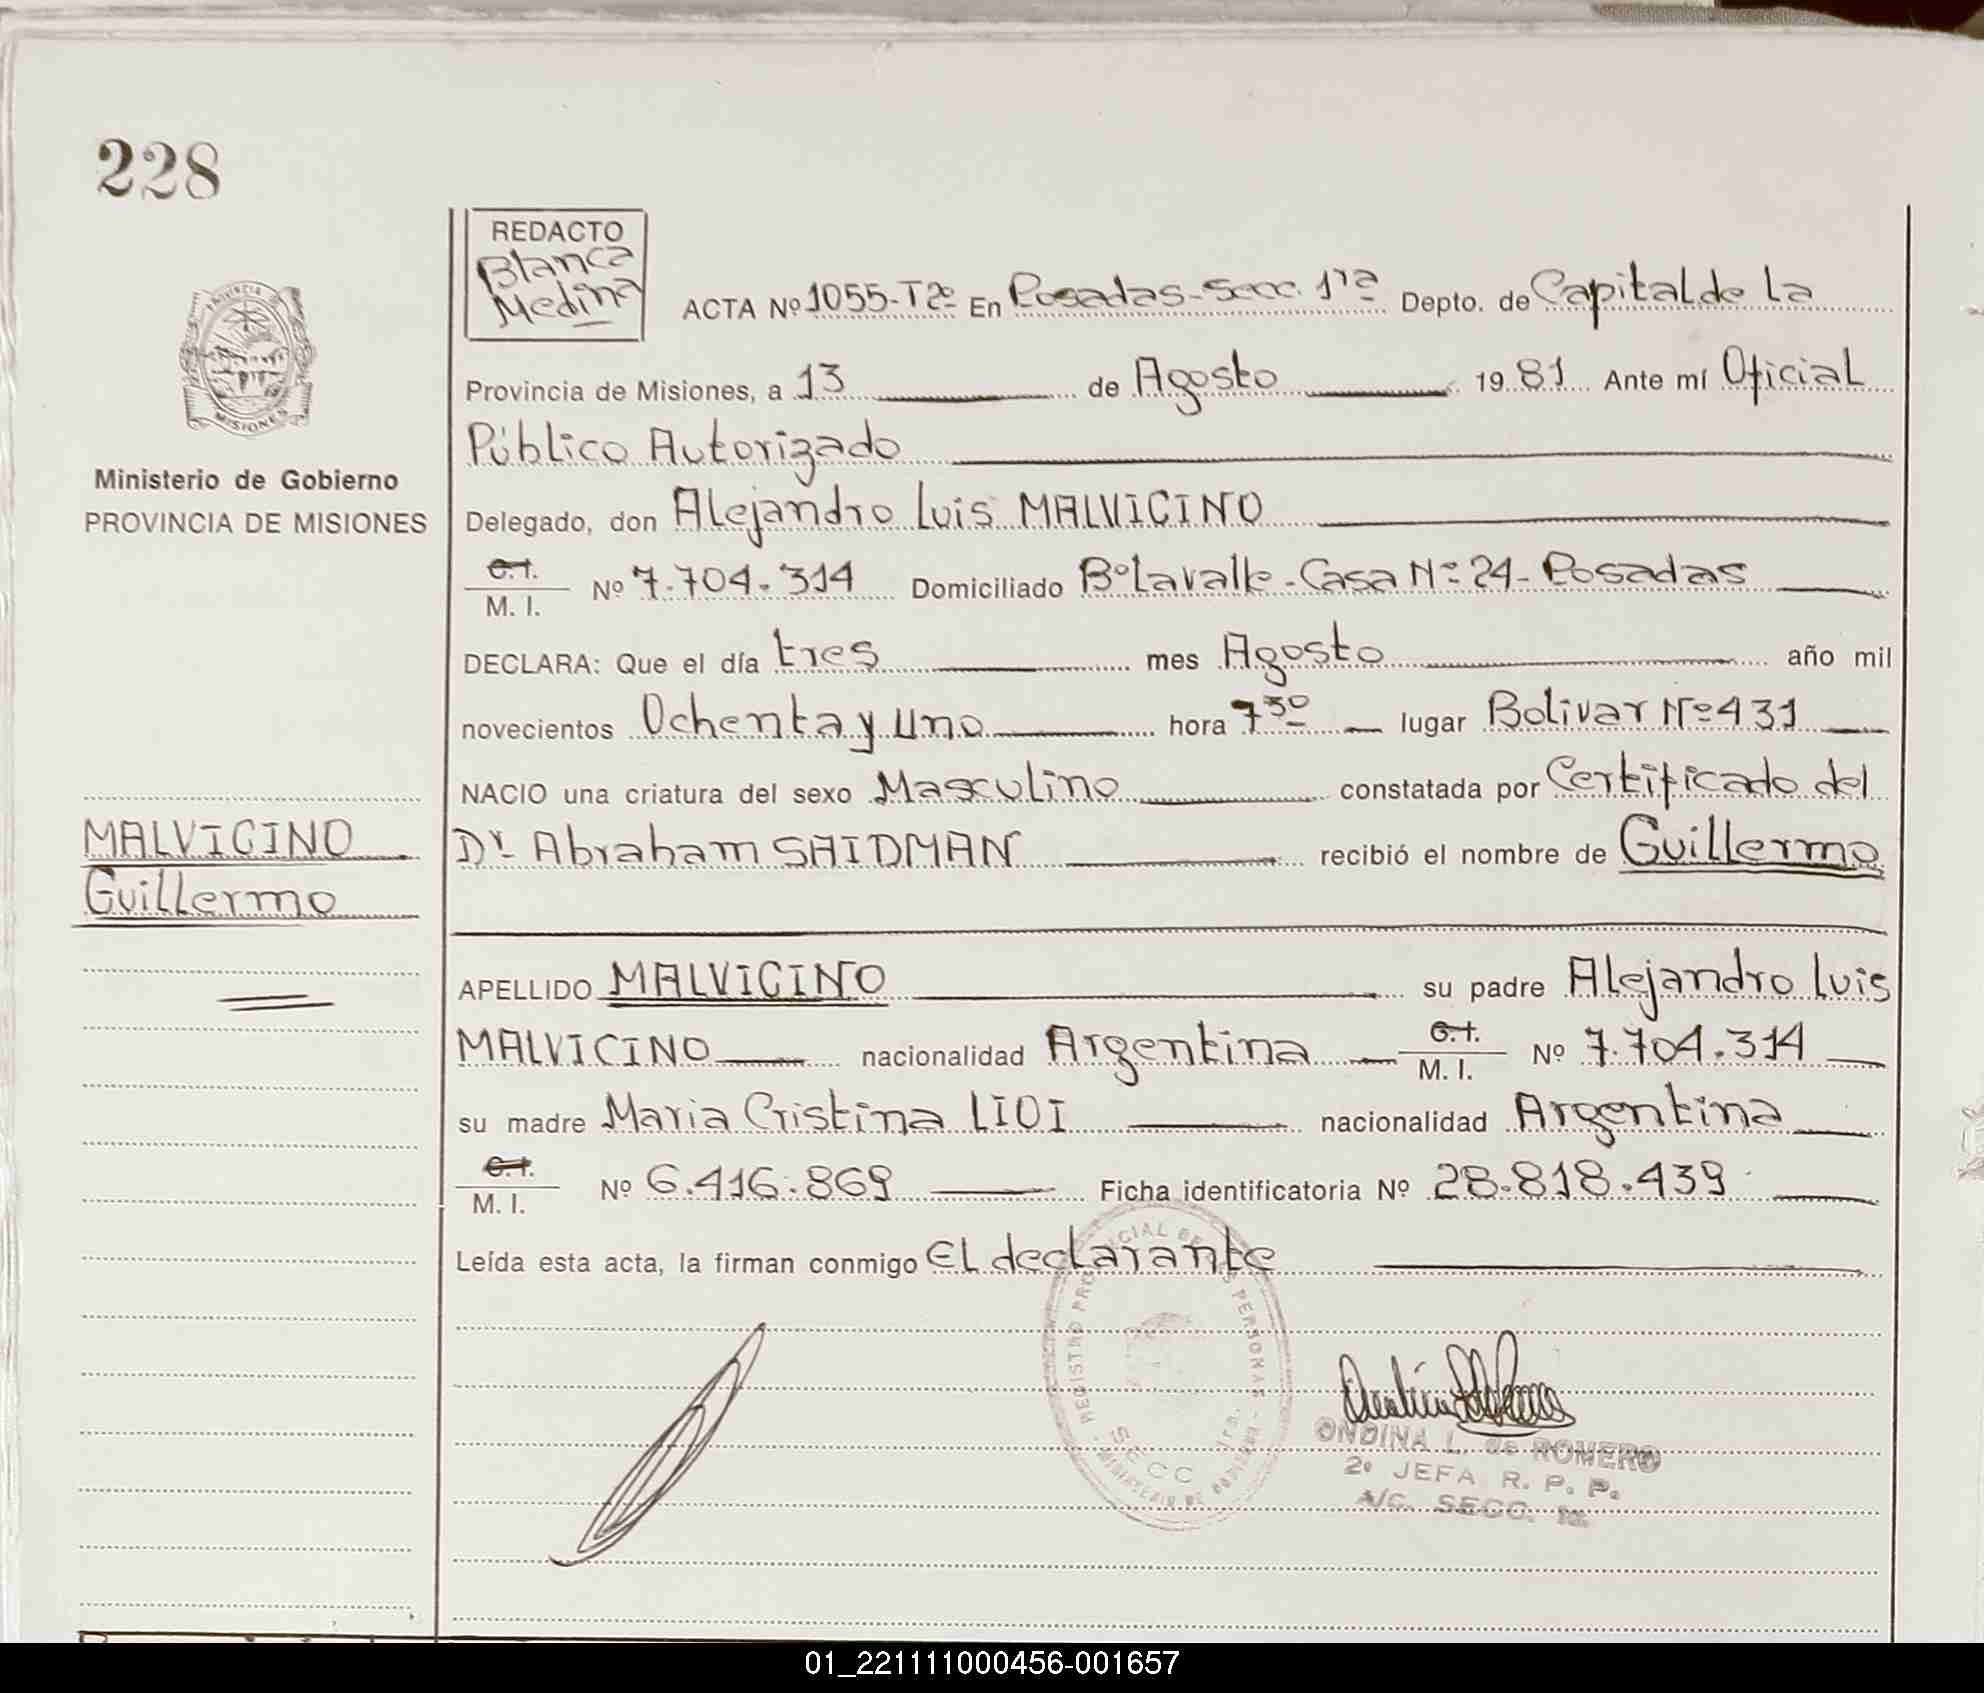 228
REDACTO
Blanca
Medina
ACTA Nº 1055-T2º En Posadas-Secc. 1ra Depto. de Capital de La
Provincia de Misiones, a 13 de Agosto 1981 Ante mí Oficial
Público Autorizado
PROVINCIA DE
MISIONES
Ministerio de Gobierno
PROVINCIA DE MISIONES
Delegado, don Alejandro Luis MALVICINO
C.I.
M. I. Nº 7.704.314 Domiciliado Bº Lavalle-Casa Nº 24-Posadas
DECLARA: Que el día tres mes Agosto año mil
novecientos Ochenta y uno hora 7 30 lugar Bolivar Nº 431
NACIO una criatura del sexo Masculino constatada por Certificado del
MALVICINO
Guillermo
Dr. Abraham SAIDMAN recibió el nombre de Guillermo
APELLIDO MALVICINO su padre Alejandro Luis
MALVICINO nacionalidad Argentina C.I. M. I. Nº 7.704.314
su madre Maria Cristina LIOI nacionalidad Argentina
C.I.
M. I. Nº 6.416.869 Ficha identificatoria Nº 28.818.439
Leída esta acta, la firman conmigo El declarante
REGISTRO PROVINCIAL DE LAS PERSONAS
SECC 1ra.
MINISTERIO DE GOBIERNO
ONDINA L. de ROMERO
2º JEFA R. P. P.
A/C. SECC. 1a.
01_221111000456-001657